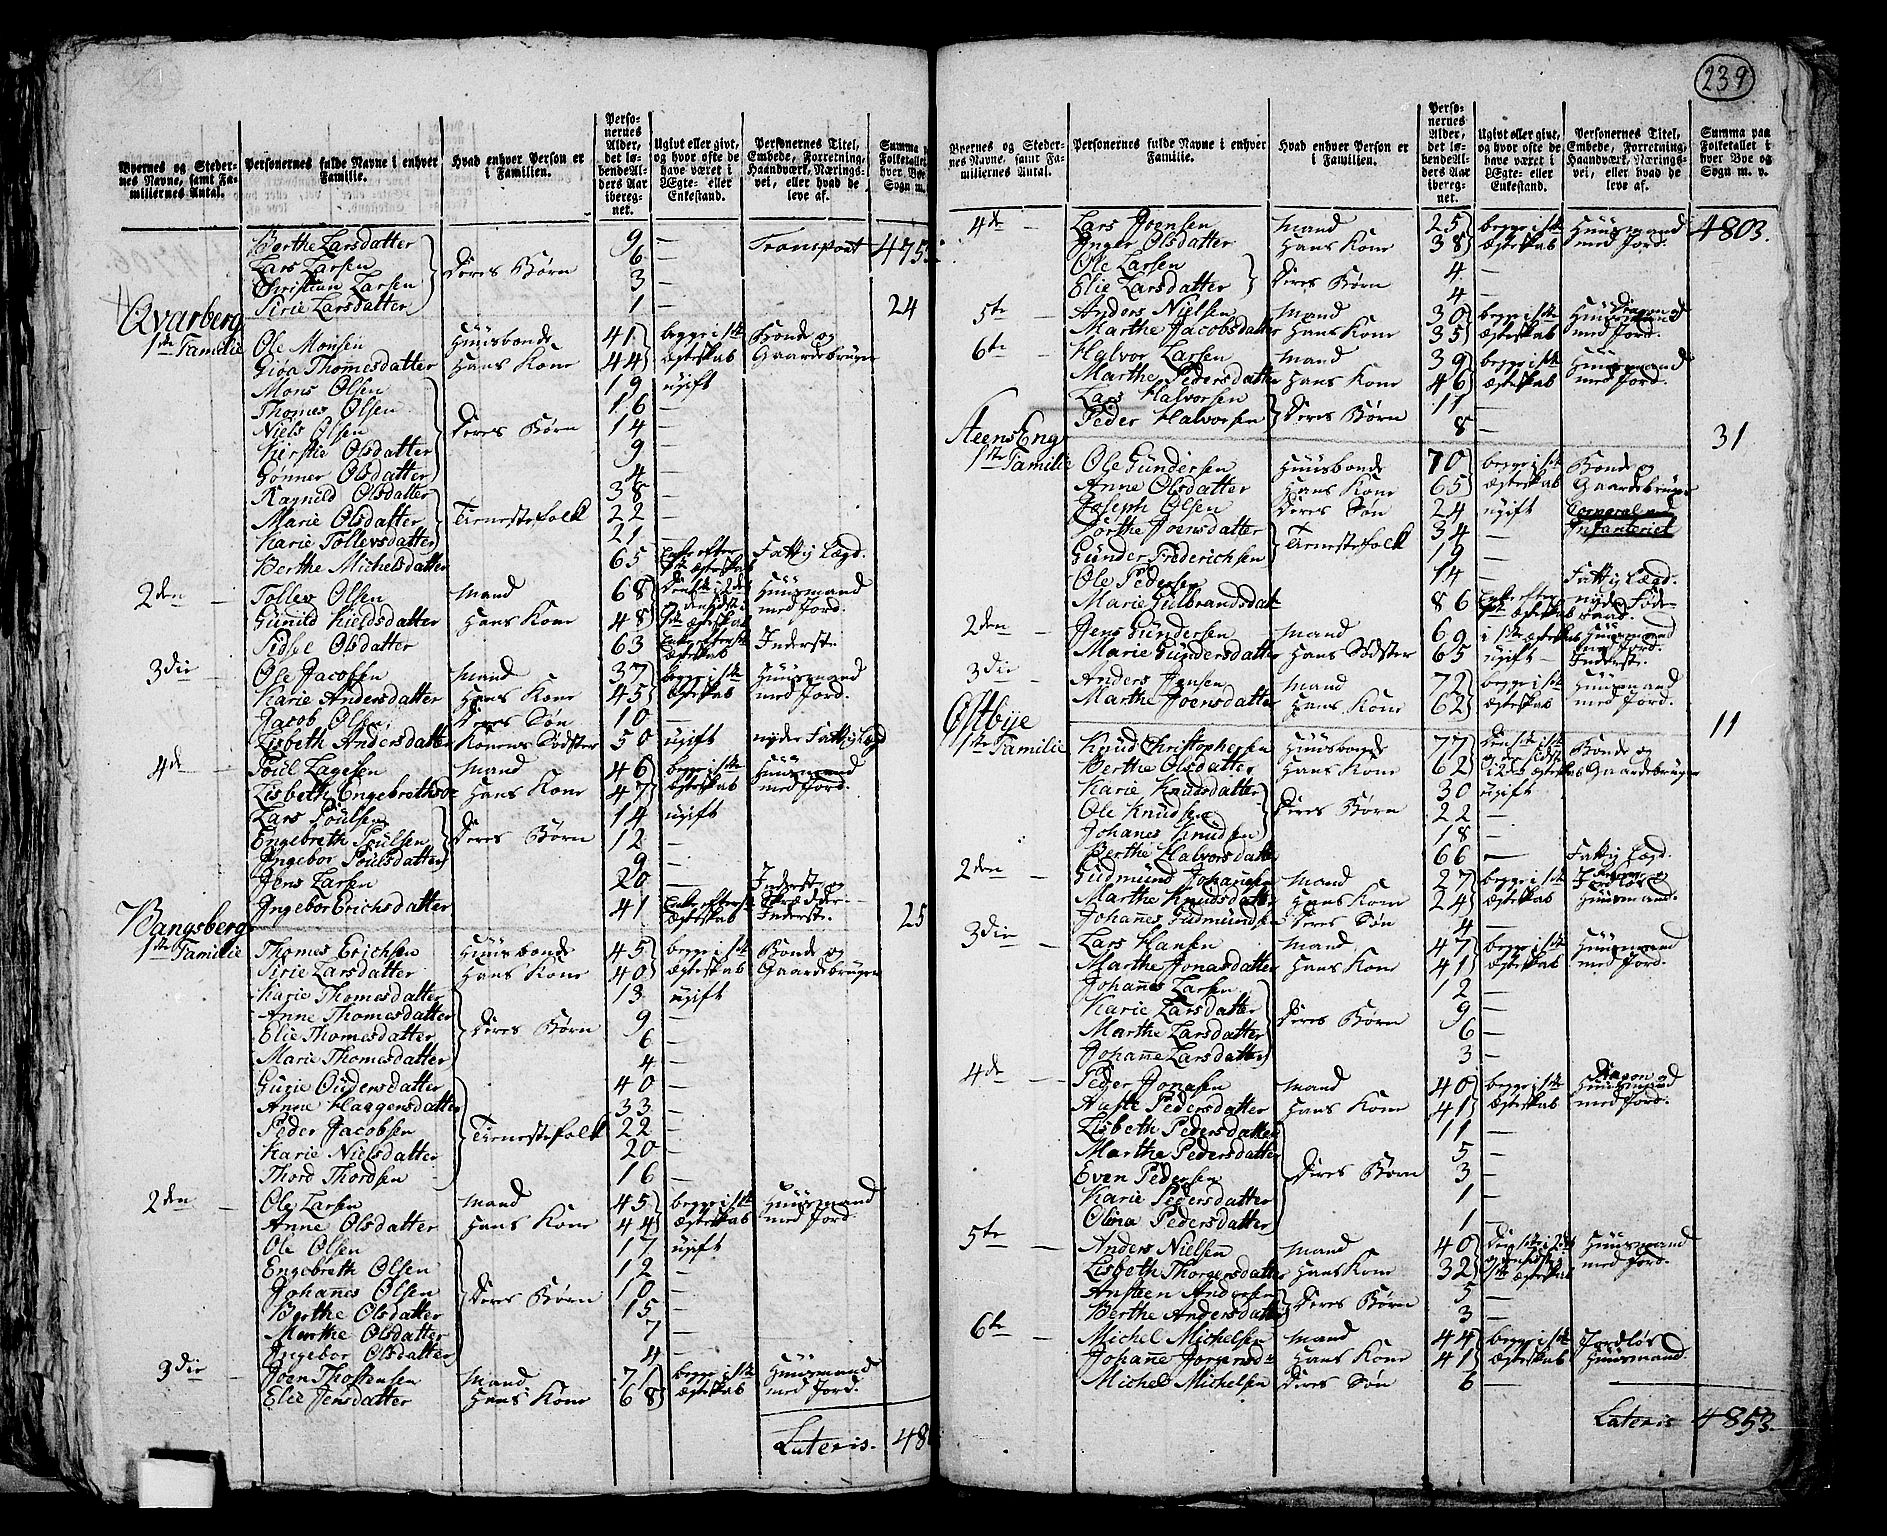 Byernes og Steder-
nes Navne, samt Fa-
miliernes Antal.
Personernes fulde Navne i enhver
Familie.
Hvad enhver Person er
i Familien.
Perso-
nernes
Alder,
det lø-
bende Al-
ders Aar
ibereg-
net.
Ugivt eller givt,
og hvor ofte de
have været i
Ægte- eller
Enkestand.
Personernes Titel,
Embede, Forretning,
Haandværk, Nærings-
vei, eller hvad de
leve af.
Summa p
Folketallet
hver Bye
Sogn m.
Berthe Larsdatter 9 — Transport 475
Lars Larsen Deres Børn 6 —
Christian Larsen 3 —
Sirie Larsdatter 1 — 24
Qvarberg
1ste Familie Ole Monsen Huusbonde 41 begge i 1ste Bonde og
Gioa Thomesdatter Hans Kone 44 Ægteskab Gaardebruger
Mons Olsen 19 ugift
Thomes Olsen 16 —
Niels Olsen Deres Børn 14 —
Kirstie Olsdatter 9 —
Gønner Olsdatter 4 —
Ragnild Olsdatter 38 —
Marie Olsdatter Tienestefolk 22 —
Karie Tollevsdatter 21 —
Berthe Michelsdatter 65 Enke efter 1ste Ægteskab Fattig Lægd.
2den — Tollev Olsen Mand 68 Huusmand
Gunild Kieldsdatter Hans Kone 48 1ste Ægteskab med Jord.
Sidsel Olsdatter 63 Enke efter 1ste Ægteskab Inderste
3die — Ole Jacobsen Mand 37 begge i 1ste Huusmand
Karie Andersdatter Hans Kone 45 Ægteskab med Jord.
Jacob Olsen Deres Søn 10 —
Lisbeth Andersdatter Konens Sødster 50 ugift nyder Fattig Lægd
4de — Poul Lagesen Mand 46 begge i 1ste Huusmand
Lisbeth Engebrethsdr Hans Kone 47 Ægteskab med Jord.
Lars Poulsen 14 ugift
Engebreth Poulsen Deres Børn 12 —
Ingebor Poulsdatter 9 —
Jens Larsen 20 — Inderste og Skrædder
Ingebor Erichsdatter 41 Enke efter 1ste Ægteskab Inderste. 25
Bangsberg
1ste Familie Thomes Erichsen Huusbonde 45 begge i 1ste Bonde og
Sirie Larsdatter Hans Kone 40 Ægteskab Gaardebruger
Karie Thomesdatter 13 ugift
Anne Thomesdatter Deres Børn 9 —
Elie Thomesdatter 6 —
Marie Thomesdatter 4 —
Gurie Oudensdatter 40 —
Anne Haagensdatter 33 —
Peder Jacobsen Tienestefolk 22 —
Karie Nielsdatter 20 —
Thord Thordsen 16 —
2den — Ole Larsen Mand 45 begge i 1ste Huusmand
Anne Olsdatter Hans Kone 44 Ægteskab med Jord.
Ole Olsen 17 ugift
Engebreth Olsen 12 —
Johanes Olsen Deres Børn 10 —
Berthe Olsdatter 15 —
Marthe Olsdatter 7 —
Ingebor Olsdatter 4 —
3die — Joen Thostensen Mand 71 begge i 1ste Huusmand
Elie Jensdatter Hans Kone 68 Ægteskab med Jord.
Lateris. 48
239
Byernes og Steder-
nes Navne, samt Fa-
miliernes Antal.
Personernes fulde Navne i enhver
Familie.
Hvad enhver Person er
i Familien.
Perso-
nernes
Alder,
det lø-
bende Al-
ders Aar
ibereg-
net.
Ugivt eller givt,
og hvor ofte de
have været i
Ægte- eller
Enkestand.
Personernes Titel,
Embede, Forretning,
Haandværk, Nærings-
vei, eller hvad de
leve af.
Summa paa
Folketallet i
hver Bye og
Sogn m. v.
4de — Lars Joensen Mand 25 begge i 1ste Huusmand 4803.
Inger Olsdatter Hans Kone 38 Ægteskab med Jord.
Ole Larsen Deres Børn 4 —
Elie Larsdatter 4 —
5te — Anders Nielsen Mand 30 begge i 1ste Huusmand
Marthe Jacobsdatter Hans Kone 35 Ægteskab med Jord.
6te — Halvor Larsen Mand 39 begge i 1ste Huusmand
Marthe Pedersdatter Hans Kone 46 Ægteskab med Jord.
Lars Halvorsen Deres Børn 11 —
Peder Halvorsen 8 — 31
Steens Eng
1ste Familie Ole Gundersen Huusbonde 70 begge i 1ste Bonde og
Anne Olsdatter Hans Kone 65 Ægteskab Gaardebruger
Joseph Olsen Deres Søn 24 ugift Corporal ved
Dorthe Joensdatter Tienestefolk 34 — Infanteriet
Gunder Friderichsen 19 —
Ole Pedersen 14 —
Marie Gulbrandsdat 86 Enke efter 1ste Ægteskab Fattig Lægd.
2den — Jens Gundersen Mand 69 i 1ste Ægteskab Huusmand
Marie Gundersdatter Hans Sødster 65 ugift — med Jord. Inderste
3die — Anders Jensen Mand 72 begge i 1ste Huusmand
Marthe Joensdatter Hans Kone 62 Ægteskab med Jord. 11
Østbye
1ste Familie Knud Christophersen Huusbonde 77 Bonde og
Berthe Olsdatter Hans Kone 62 i 2det Ægteskab Gaardebruger
Karie Knudsdatter 30 ugift
Ole Knudsen Deres Børn 22 —
Johanes Knudsen 18 —
Berthe Halvorsdatter 66 — Fattig Lægd.
2den — Gudmund Johanesen Mand 27 begge i 1ste Jordløs
Marthe Knudsdatter Hans Kone 24 Ægteskab Huusmand.
Johannes Gudmundsen Deres Søn 4 —
3die — Lars Hansen Mand 47 begge i 1ste Huusmand
Marthe Jonasdatter Hans Kone 41 Ægteskab med Jord.
Johannes Larsen 12 —
Karie Larsdatter Deres Børn 9 —
Marthe Larsdatter 6 —
Johanne Larsdatter 3 —
4de — Peder Jonasen Mand 40 begge i 1ste Huusmand
Aaste Pedersdatter Hans Kone 41 Ægteskab med Jord.
Lisbeth Pedersdatter 11 —
Marthe Pedersdatter 5 —
Even Pedersen Deres Børn 3 —
Karie Pedersdatter 1 —
Olina Pedersdatter 1
5te — Anders Nielsen Mand 40 Huusmand
Lisbeth Thorgersdatter Hans Kone 32 1ste Ægteskab med Jord.
Ansteen Andersen Deres Børn 5 —
Berthe Andersdatter 3 —
6te — Michel Michelsen Mand 44 begge i 1ste Jordløs
Johanne Jorgensdr Hans Kone 41 Ægteskab Huusmand.
Michel Michelsen Deres Søn 6 —
Lateris 4853.